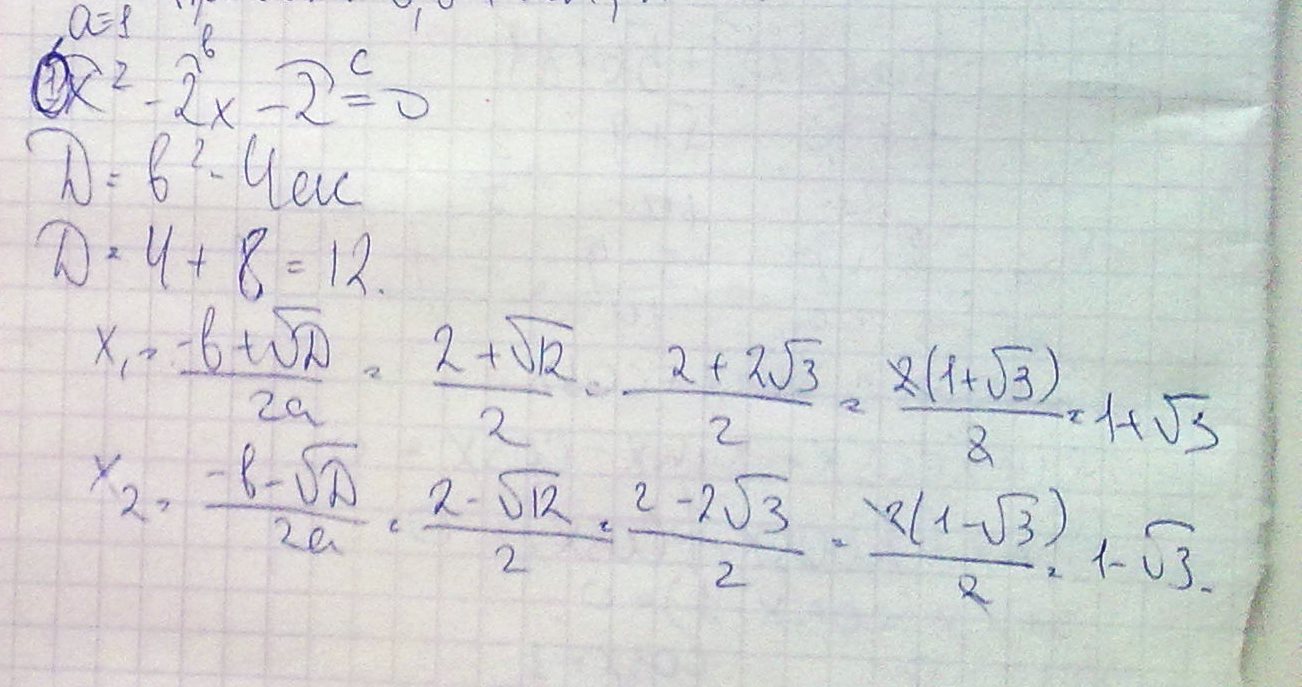 a=1
1x² - 2x - 2 = 0
в c
D = в² - 4ac
D = 4 + 8 = 12.
x₁ = (-в + √D)/2a = (2 + √12)/2 = (2 + 2√3)/2 = 2(1 + √3)/2 = 1 + √3
x₂ = (-в - √D)/2a = (2 - √12)/2 = (2 - 2√3)/2 = 2(1 - √3)/2 = 1 - √3.